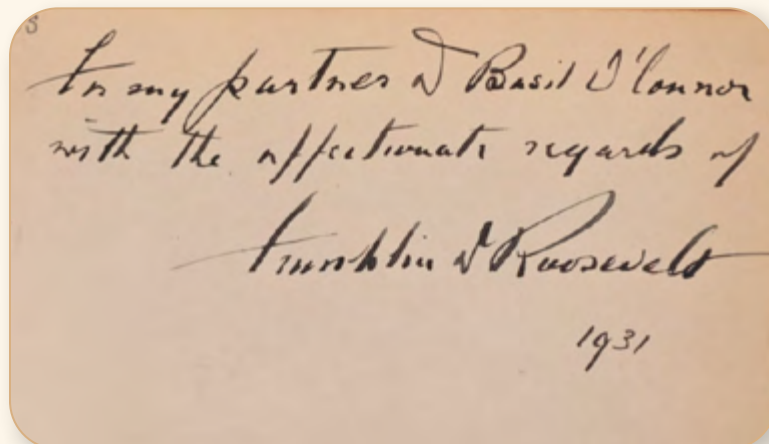 For my partner D Basil O'Connor
with the affectionate regards of
Franklin D Roosevelt
1931